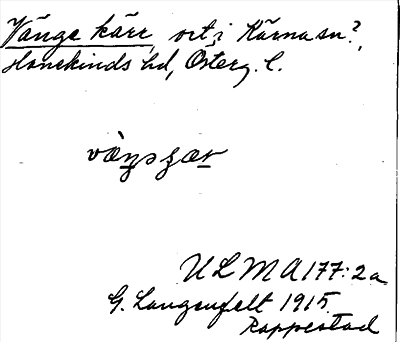 Vänge kärr, ort i Kärna sn?,
Hanekinds hd, Österg. l.
ULMA 177:2a
G. Langenfelt 1915.
Rappestad